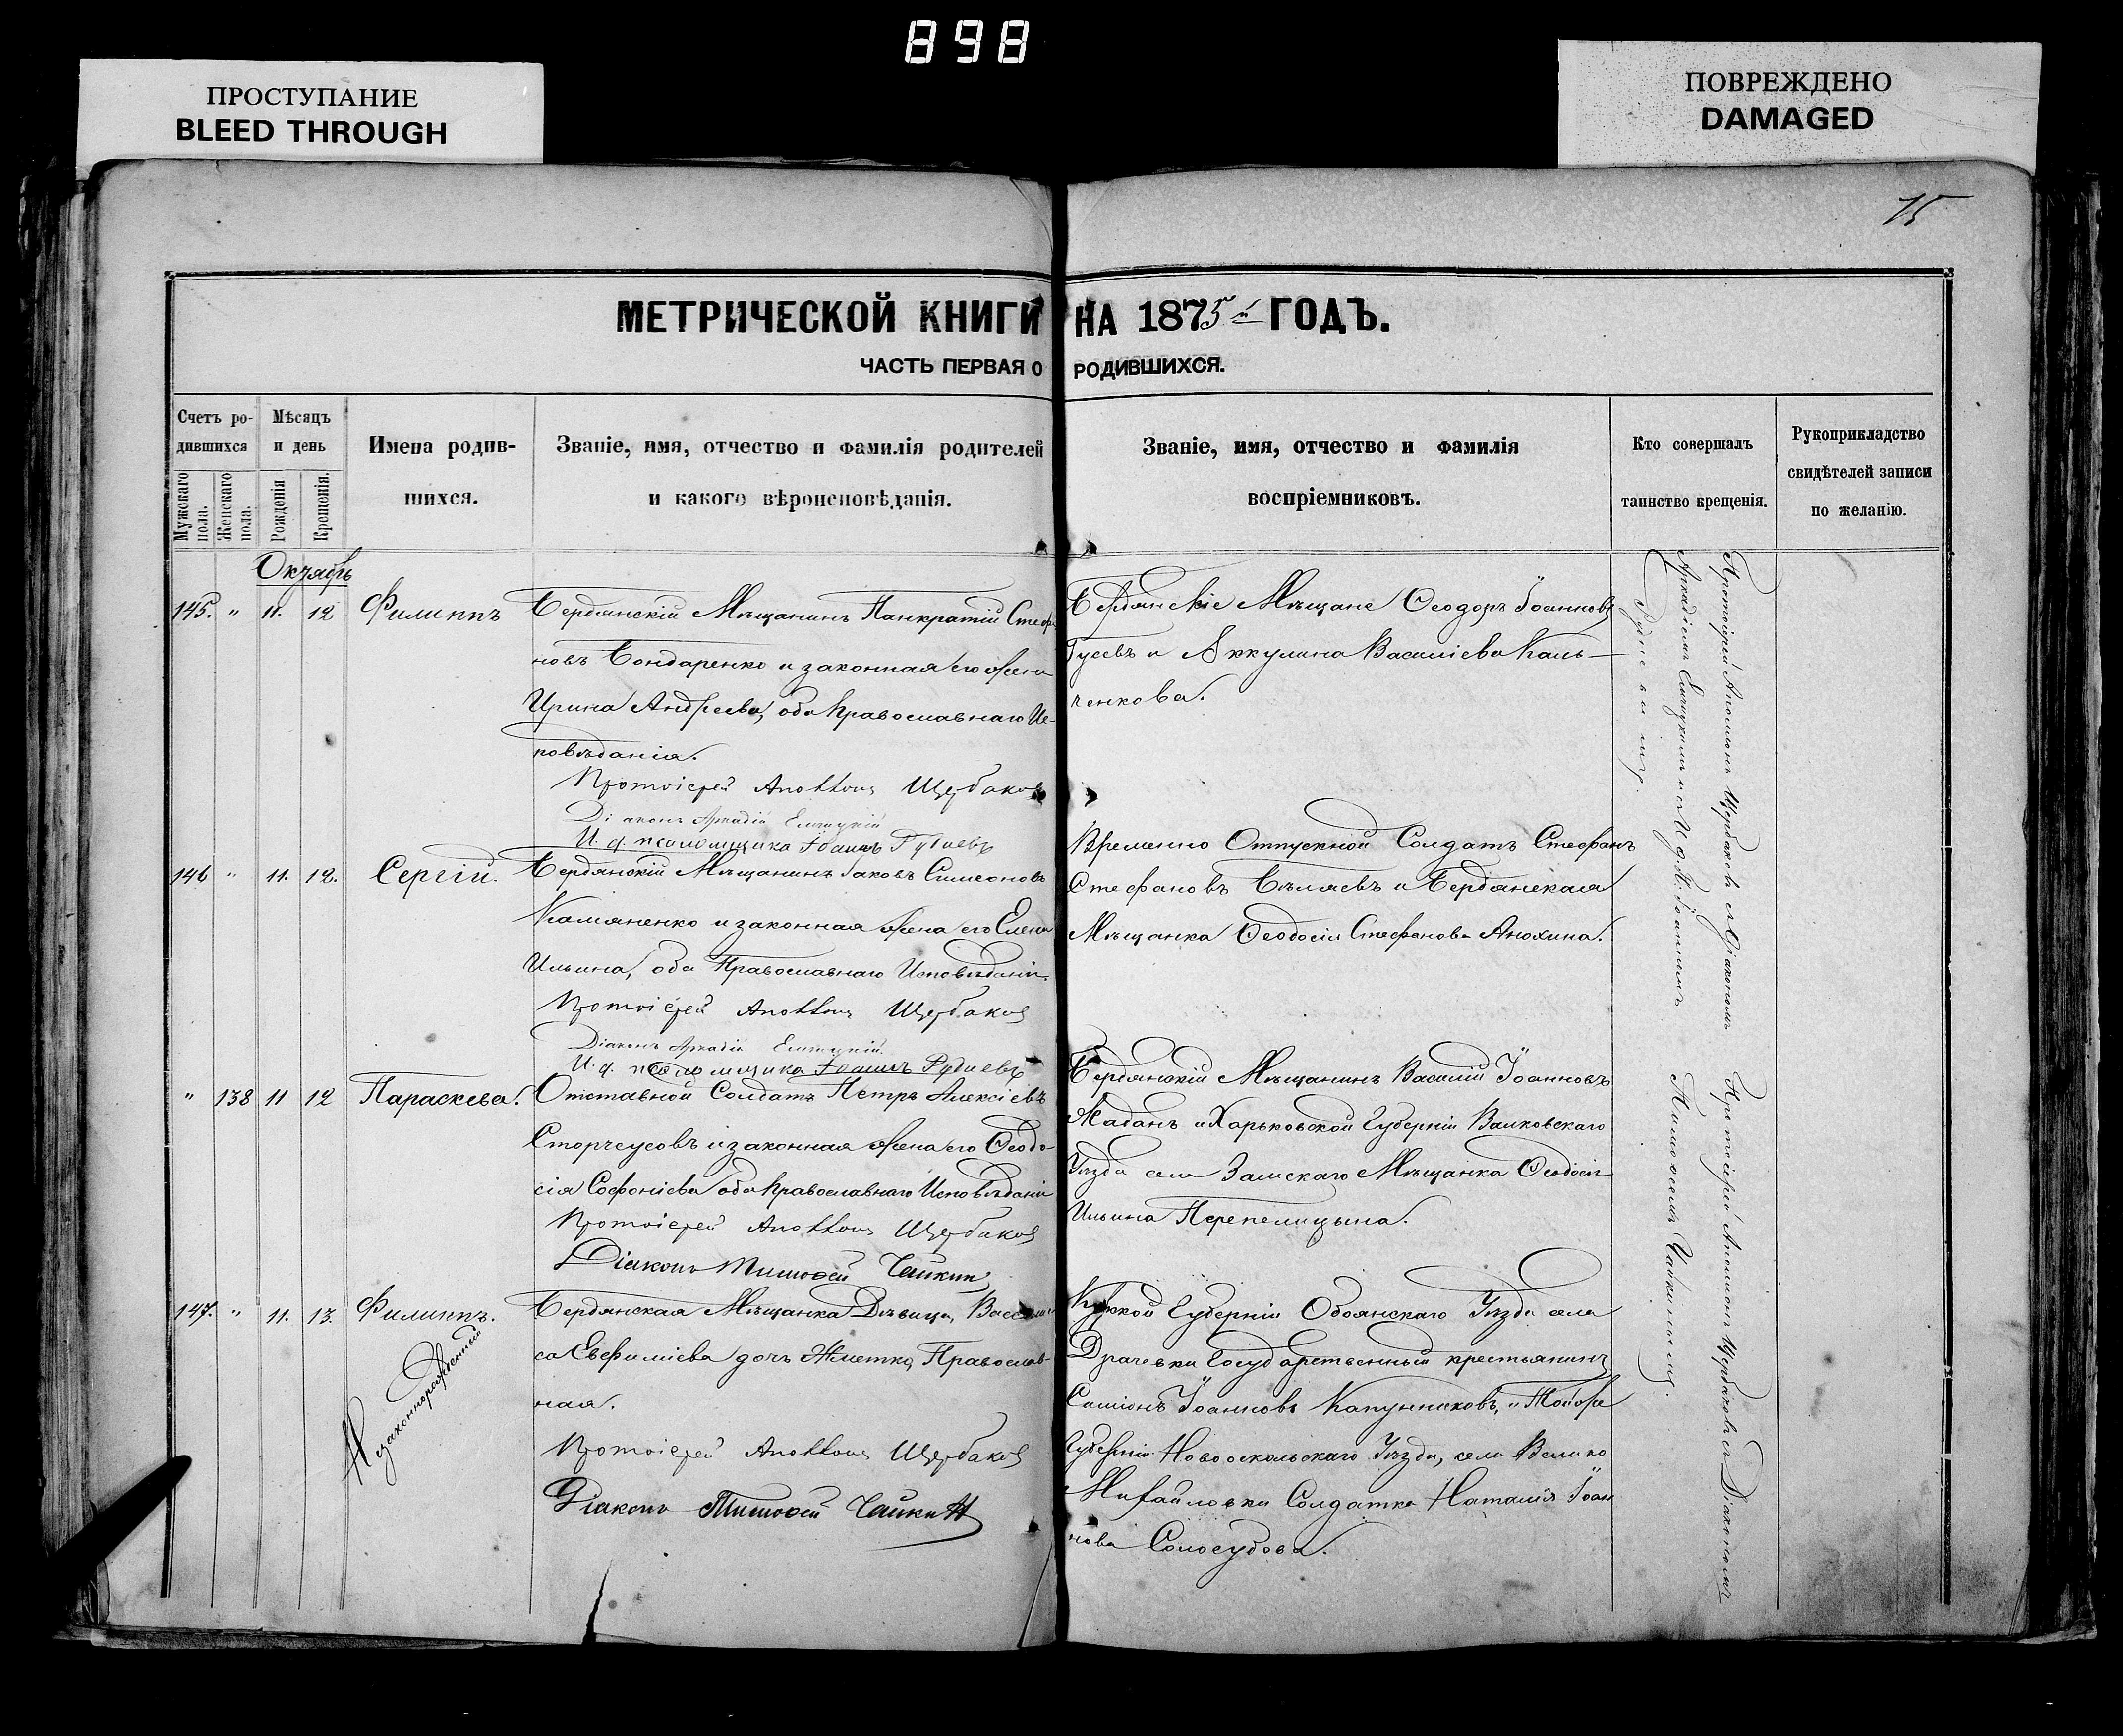 898
ПРОСТУПАНИЕ
BLEED THROUGH
ПОВРЕЖДЕНО
DAMAGED
75
МЕТРИЧЕСКОЙ КНИГИ НА 1875й ГОДЪ.
ЧАСТЬ ПЕРВАЯ О РОДИВШИХСЯ.
Счетъ ро-
дившихся
Мужескаго
пола.
Женскаго
пола.
Мѣсяцъ
и день
Рожденія
Крещенія.
Имена родив-
шихся.
Званіе, имя, отчество и фамилія родителей
и какого вѣроисповѣданія.
Званіе, имя, отчество и фамилія
воспріемниковъ.
Кто совершалъ
таинство крещенія.
Рукоприкладство
свидѣтелей записи
по желанію.
Октябрь
145. " 11. 12 Филиппъ
Бердянскій Мѣщанинъ Панкратій Стефа
новъ Бондаренко и законная его жена
Ирина Андреева, оба Православнаго Ис-
повѣданія.
Протоіерей Аполлонъ Щербаковъ
Діаконъ Аркадій
И. д. псаломщика Іоаннъ Рудневъ
Бердянскіе Мѣщане Ѳеодоръ Іоанновъ
Гусевъ и Аккулина Василіева Каль-
ченкова.
146 " 11. 12. Сергій.
Бердянскій Мѣщанинъ Іаковъ Симеоновъ
Камяненко и законная жена его Елена
Ильина, оба Православнаго Исповѣданія.
Протоіерей Аполлонъ Щербаковъ
Діаконъ Аркадій
И. д. псаломщика Іоаннъ Рудневъ
Временно Отпускной Солдатъ Стефанъ
Стефановъ Бѣляевъ и Бердянская
Мѣщанка Ѳеодосія Стефанова Анохина.
" 138 11 12 Параскева.
Отставной Солдатъ Петръ Алексіевъ
Сторчеусовъ и законная жена его Ѳеодо-
сія Софоніева оба Православнаго Исповѣданія
Протоіерей Аполлонъ Щербаковъ
Діаконъ Тимоѳей Чайкинъ
Бердянскій Мѣщанинъ Василій Іоанновъ
Жаданъ и Харьковской Губерніи Валковскаго
Уѣзда села Мѣщанка Ѳеодосія
Ильина Перепелицына.
147. " 11. 13. Филиппъ.
Незаконнорожденный
Бердянская Мѣщанка Дѣвица, Васили
са Евфиміева дочь Православ-
ная.
Протоіерей Аполлонъ Щербаковъ
Діаконъ Тимоѳей Чайкинъ
Курской Губерніи Обоянскаго Уѣзда села
Драчевки Государственный крестьянинъ
Симіонъ Іоанновъ и Тойже
Губерніи Новооскольскаго Уѣзда, села Велико
Михайловки Солдатка Наталія Іоан
нова
Протоіерей Аполлонъ Щербаковъ съ Діакономъ
Аркадіемъ и И. д. п. Іоанномъ
Рудневымъ.
Протоіерей Аполлонъ Щербаковъ съ Діакономъ
Тимоѳеемъ Чайкинымъ.